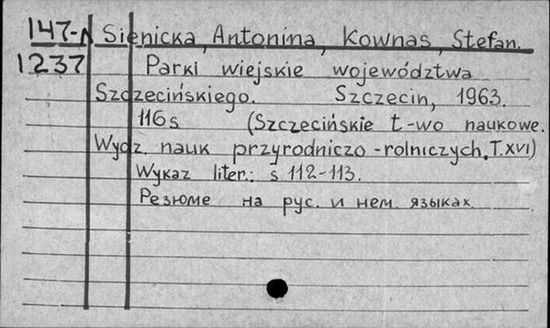 147-A Sienicka, Antonina, Kownas, Stefan.
1237 Parki wiejskie województwa
Szczecińskiego. Szczecin, 1963.
116s (Szczecińskie t-wo naukowe.
Wydz. nauk przyrodniczo-rolniczych, T.XVI)
Wykaz liter.: s 112-113.
Резюме на рус. и нем. языках.